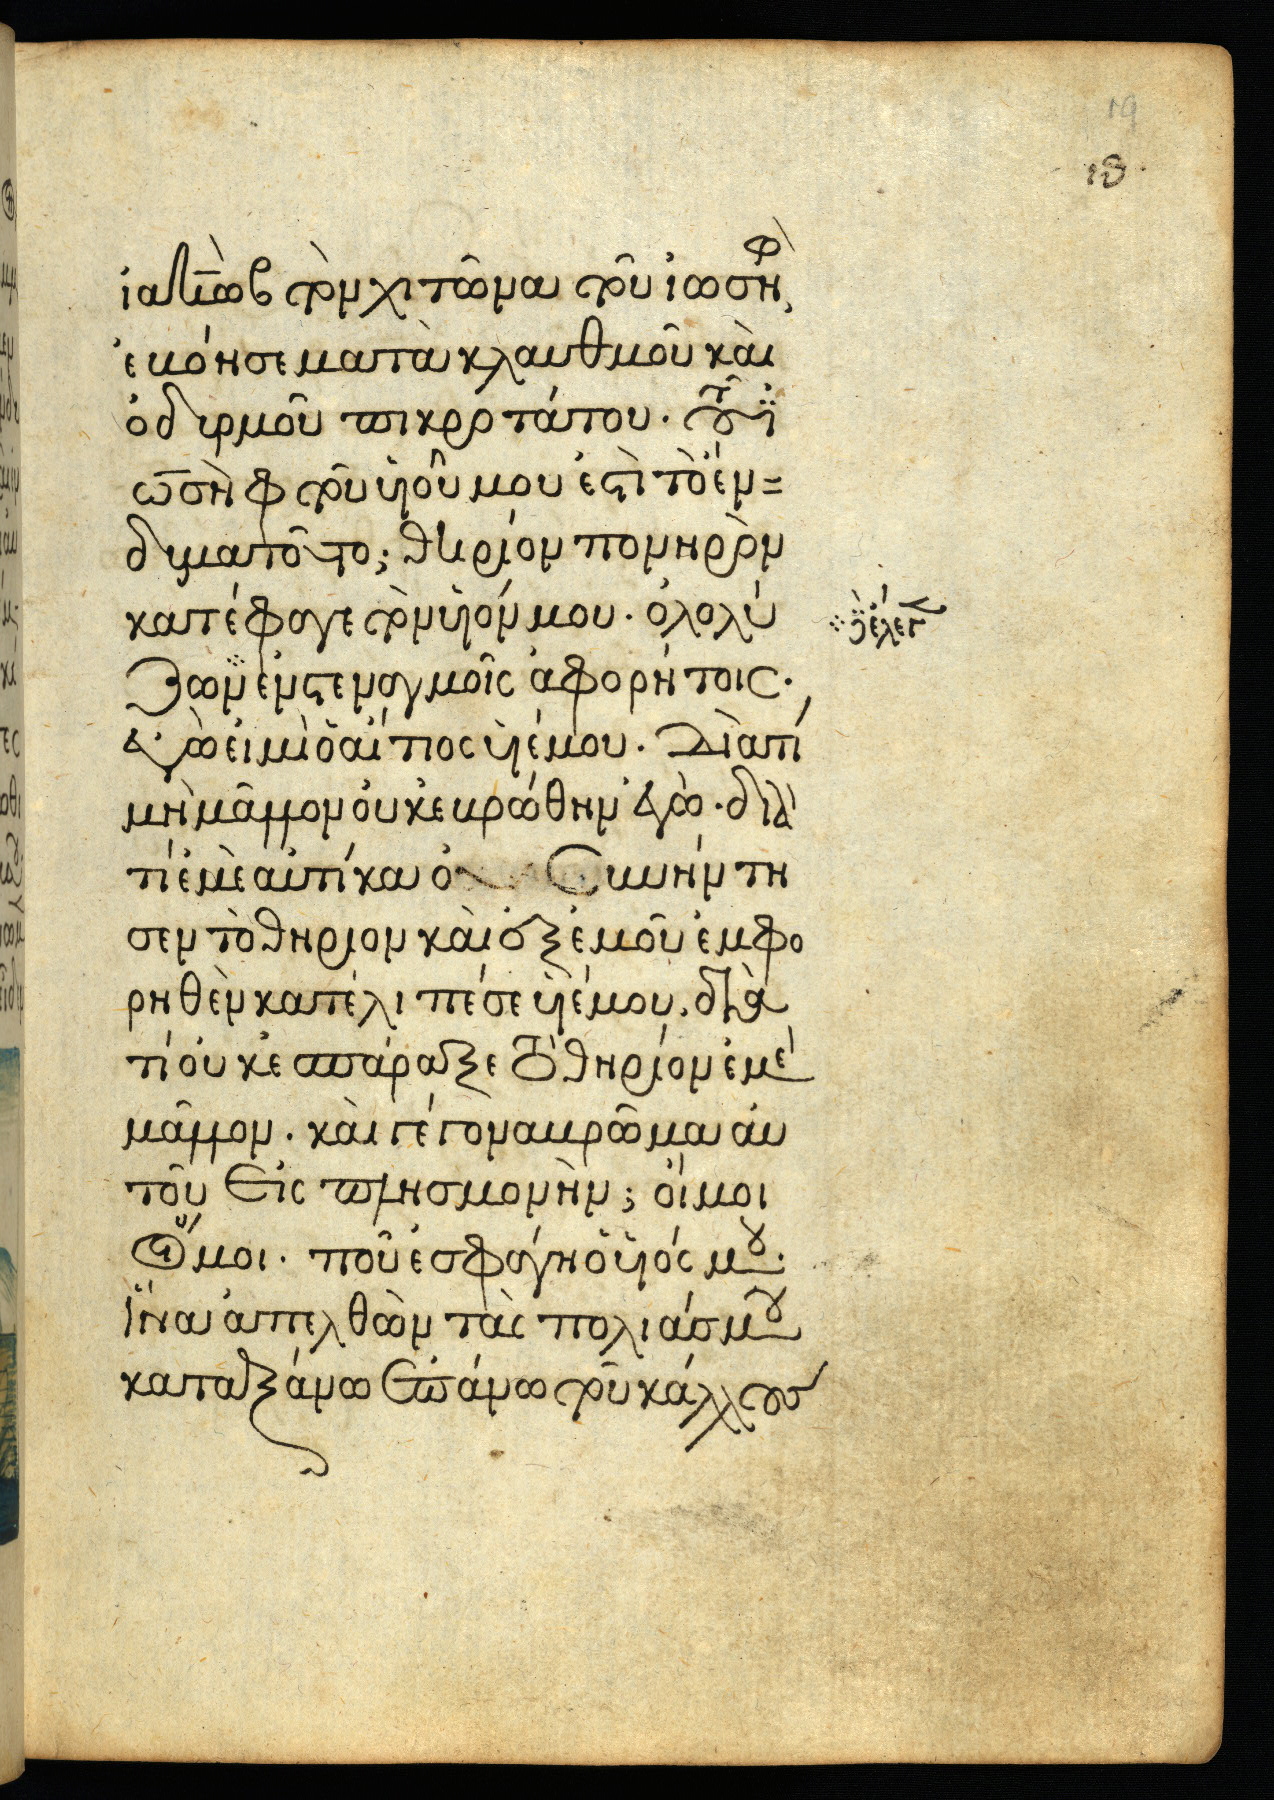 19
ιθ.
ἰακὼβ τὸν χιτῶνα τοῦ ἰωσὴφ,
ἐβόησε μετὰ κλαυθμοῦ καὶ
ὀδυρμοῦ πικροτάτου. τοῦ ἰ
ωσὴφ τοῦ ὑιοῦ μου ἐστὶ τὸ ἔν=
δυμα τοῦτο; θηρίον πονηρὸν
κατέφαγε τὸν ὑιόν μου. ὀλολύ
ζων ἐν στεναγμοῖς ἀφορήτοις.
καὶ ἔλεγε
ἐγὼ εἰμὶ ὁ αἴτιος ὑιέ μου. διατί
μὴ μᾶλλον οὐκ ἐβρώθην ἐγὼ. διὰ
τί ἐμὲ αὐτίκα ὁ συνήντη
σεν τὸ θηρίον καὶ ἐξ ἐμοῦ ἐμφο
ρηθὲν κατέλιπέ σε ὑιέ μου. διὰ
τί οὐκ ἐσπάραξε τὸ θηρίον ἐμὲ
μᾶλλον. καὶ γέγονα βρῶμα αὐ
τοῦ εἰς πλησμονὴν; οἴμοι
οἴμοι. ποῦ ἐσφάγη ὁ ὑιός μου.
ἵνα ἀπελθὼν τὰς πολιάς μου
καταξάνω ἐπάνω τοῦ κάλλους